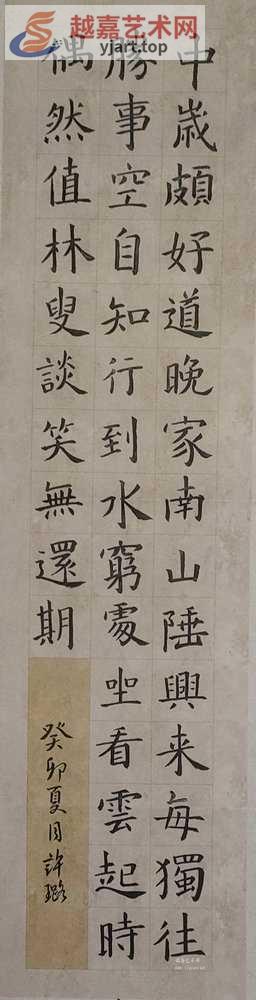 越嘉艺术网
yjart.top
中歲頗好道晚家南山陲興来每獨往
勝事空自知行到水窮處坐看雲起時
偶然值林叟談笑無還期
癸卯夏月許璐